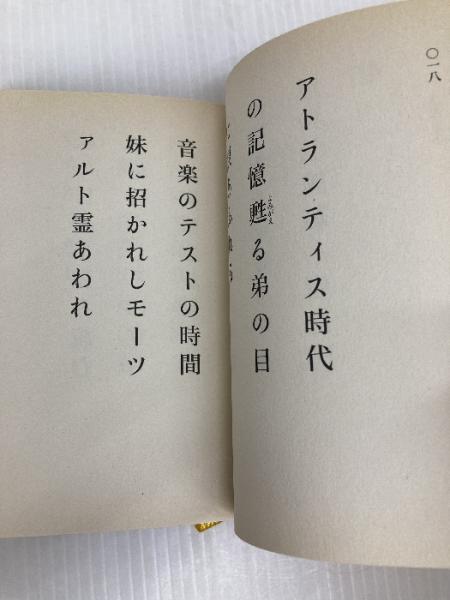 〇一八
アトランティス時代
の記憶甦る弟の目
よみがえ
音楽のテストの時間
妹に招かれしモーツ
ァルト霊あわれ